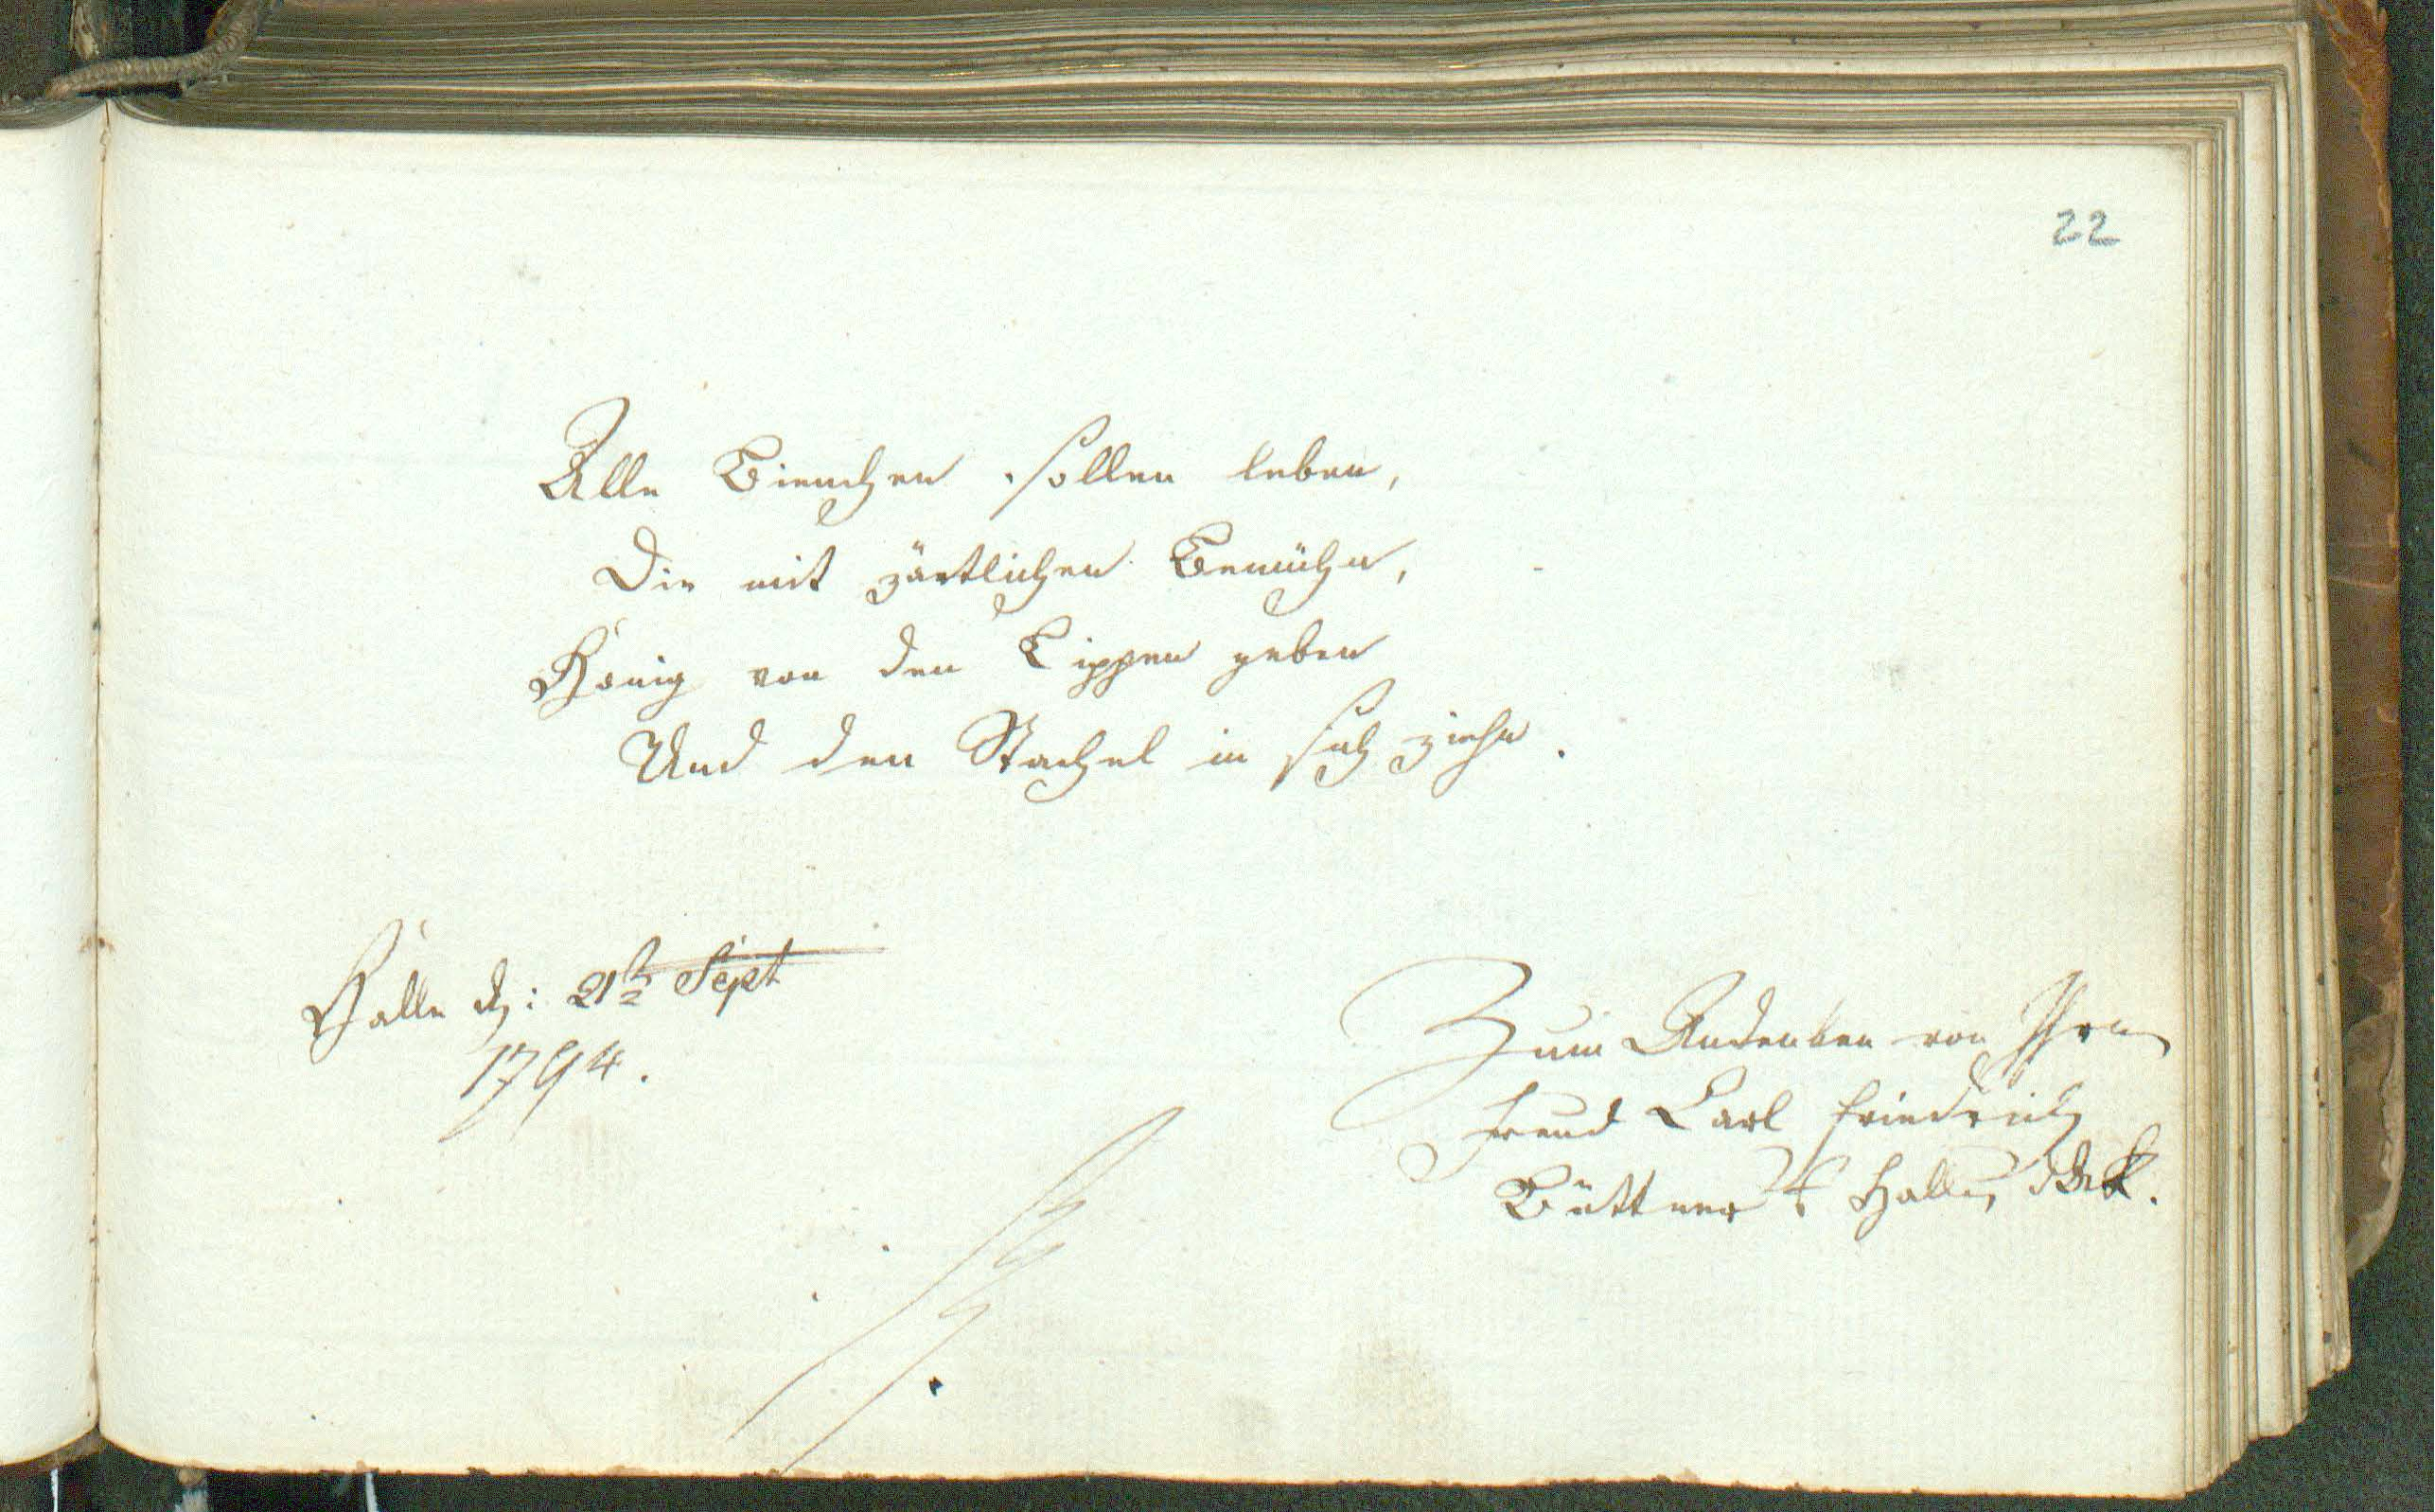 22
Alle Bienchen sollen leben,
Die mit zärtlichen Bemühn,
Honig von den Lippen geben
Und den Stachel in sich ziehn.
Halle d: 21 Sept
1794.
Zum Andenken von Ihren
Freund Carl Friedrich
Büttner Halle